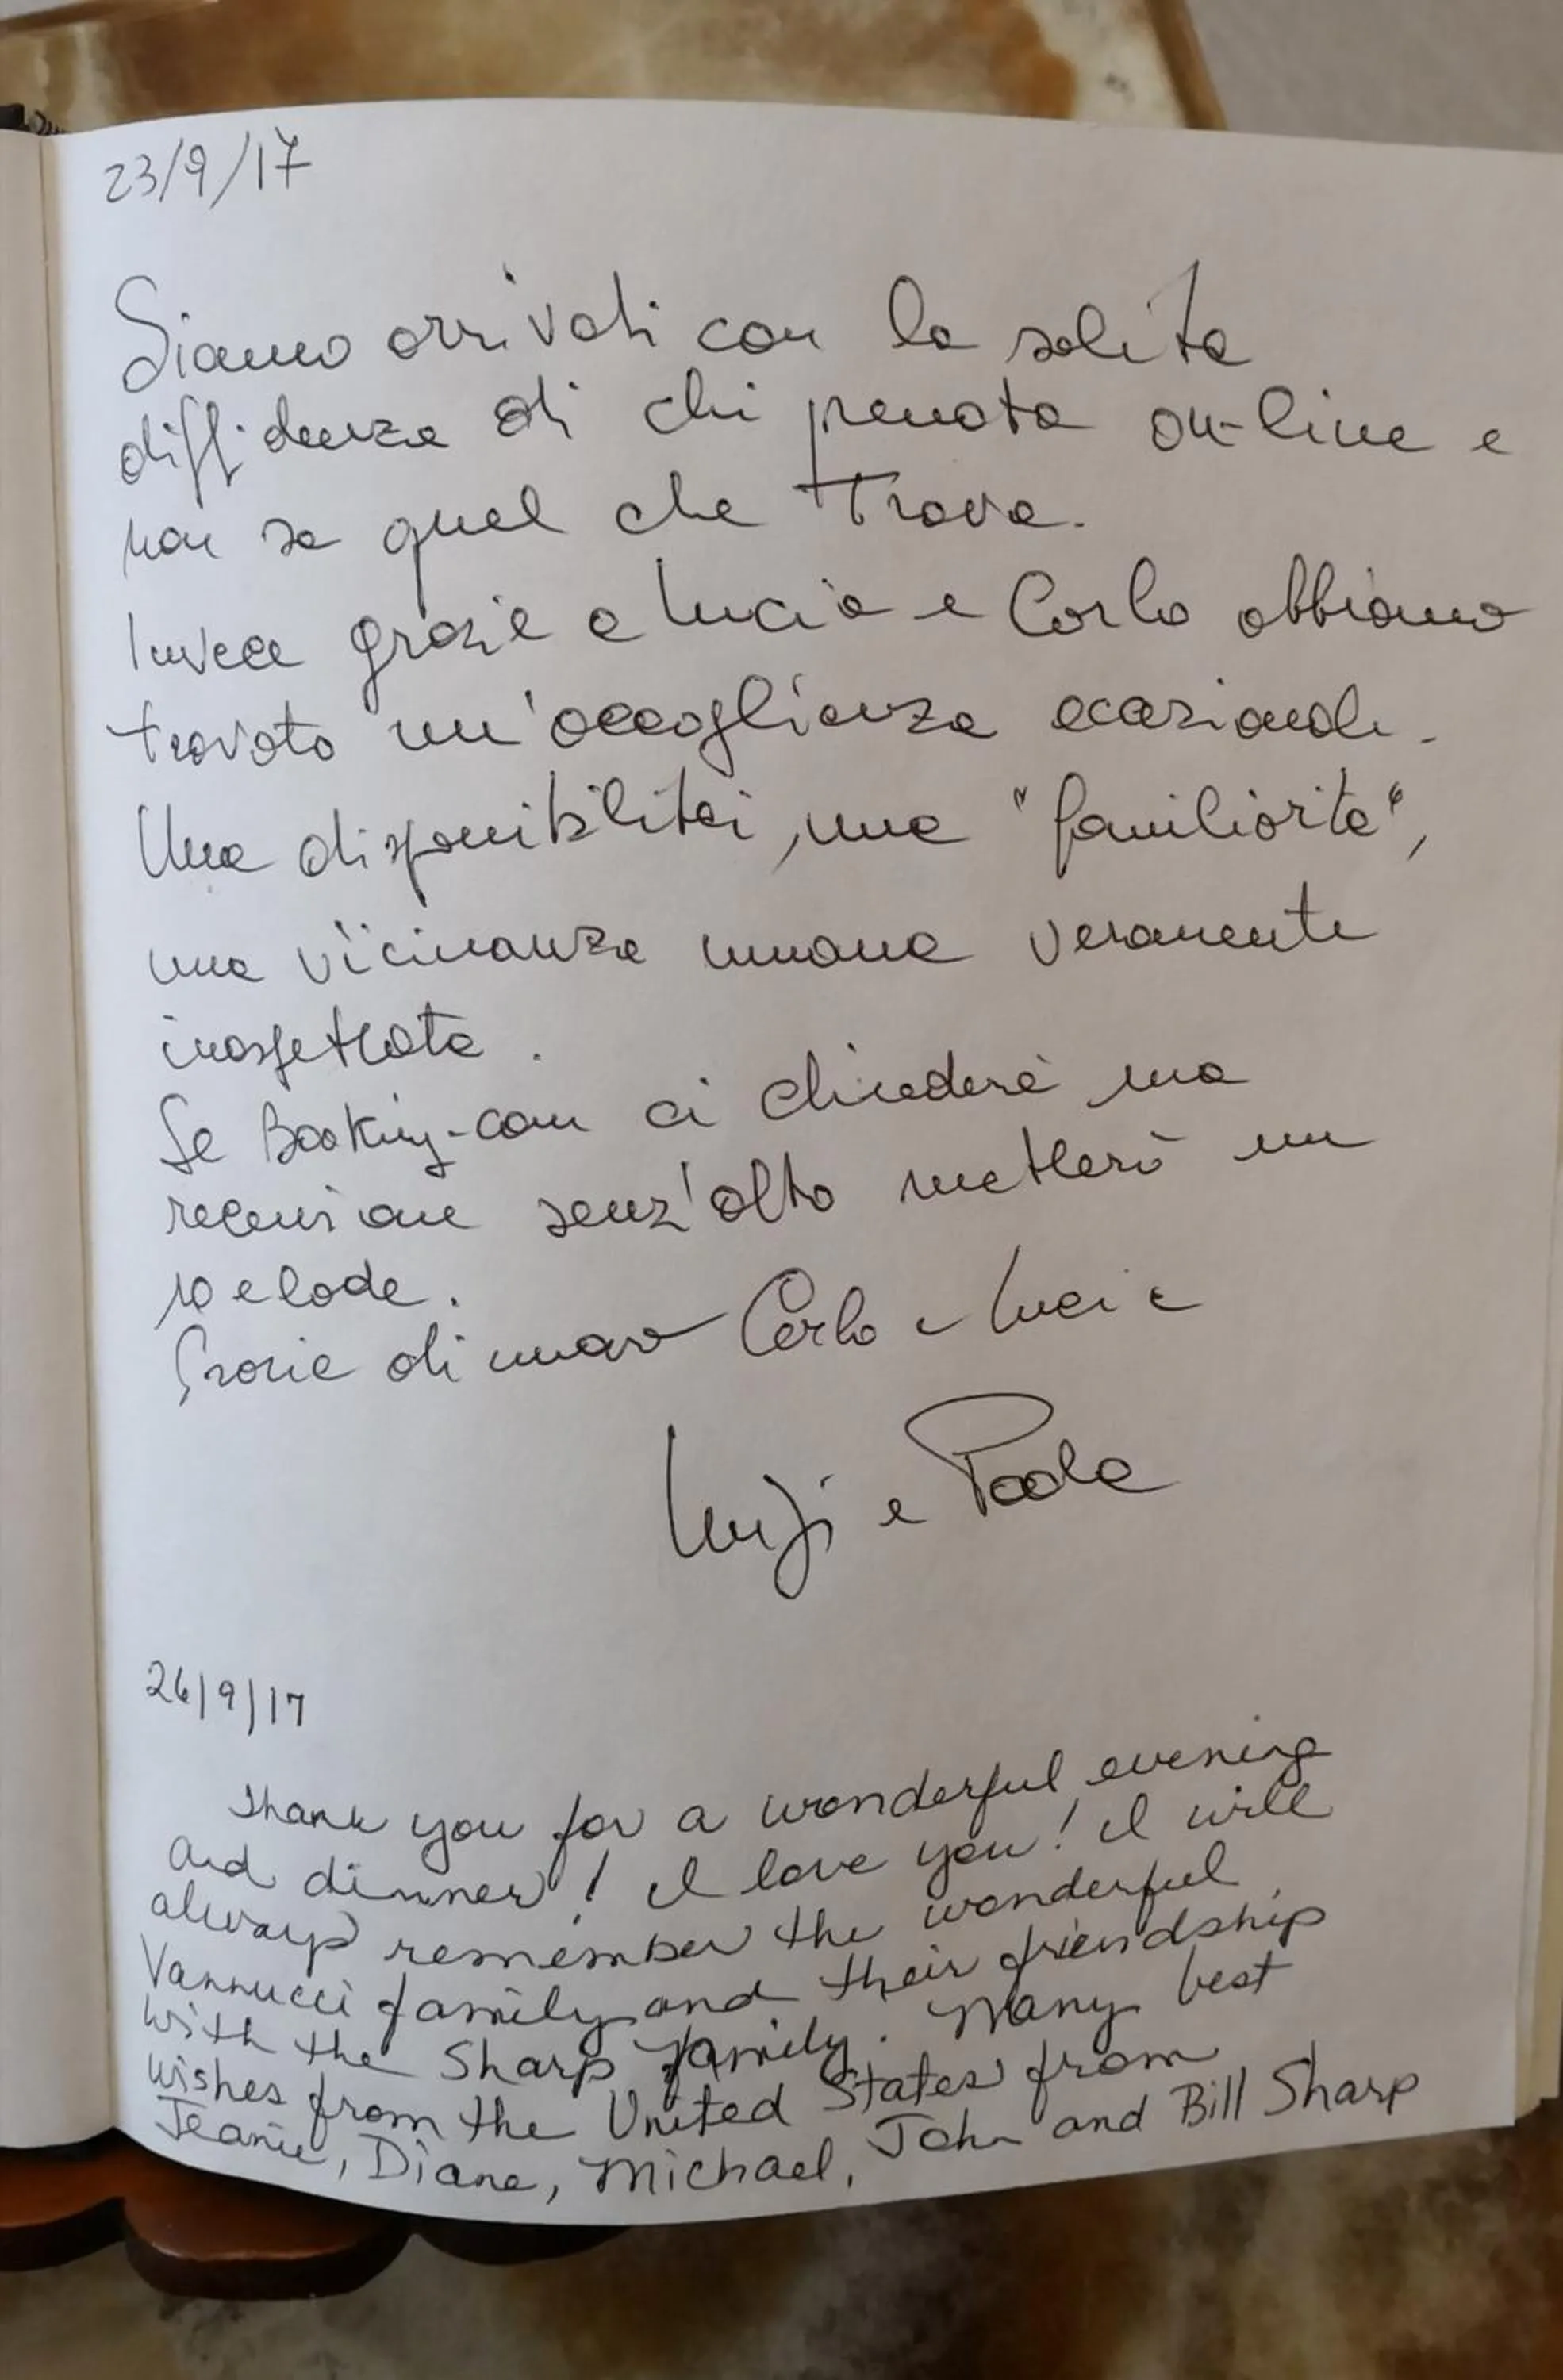 23/9/17
Siamo arrivati con la solita
diffidenza di chi prenota on-line e
non sa quel che trova.
Invece grazie a Lucia e Carlo abbiamo
trovato un'accoglienza eccezionale.
Una disponibilità, una "familiarità",
una vicinanza umana veramente
inaspettata.
Se Booking-com ci chiederà una
recensione senz'altro metterò un
10 e lode.
Grazie di nuovo Carlo e Lucia
Luigi e Paola
26/9/17
Thank you for a wonderful evening
and dinner! I love you! I will
always remember the wonderful
Vannucci family and their friendship
with the Sharp family. Many best
wishes from the United States from
Jeanie, Diane, Michael, John and Bill Sharp